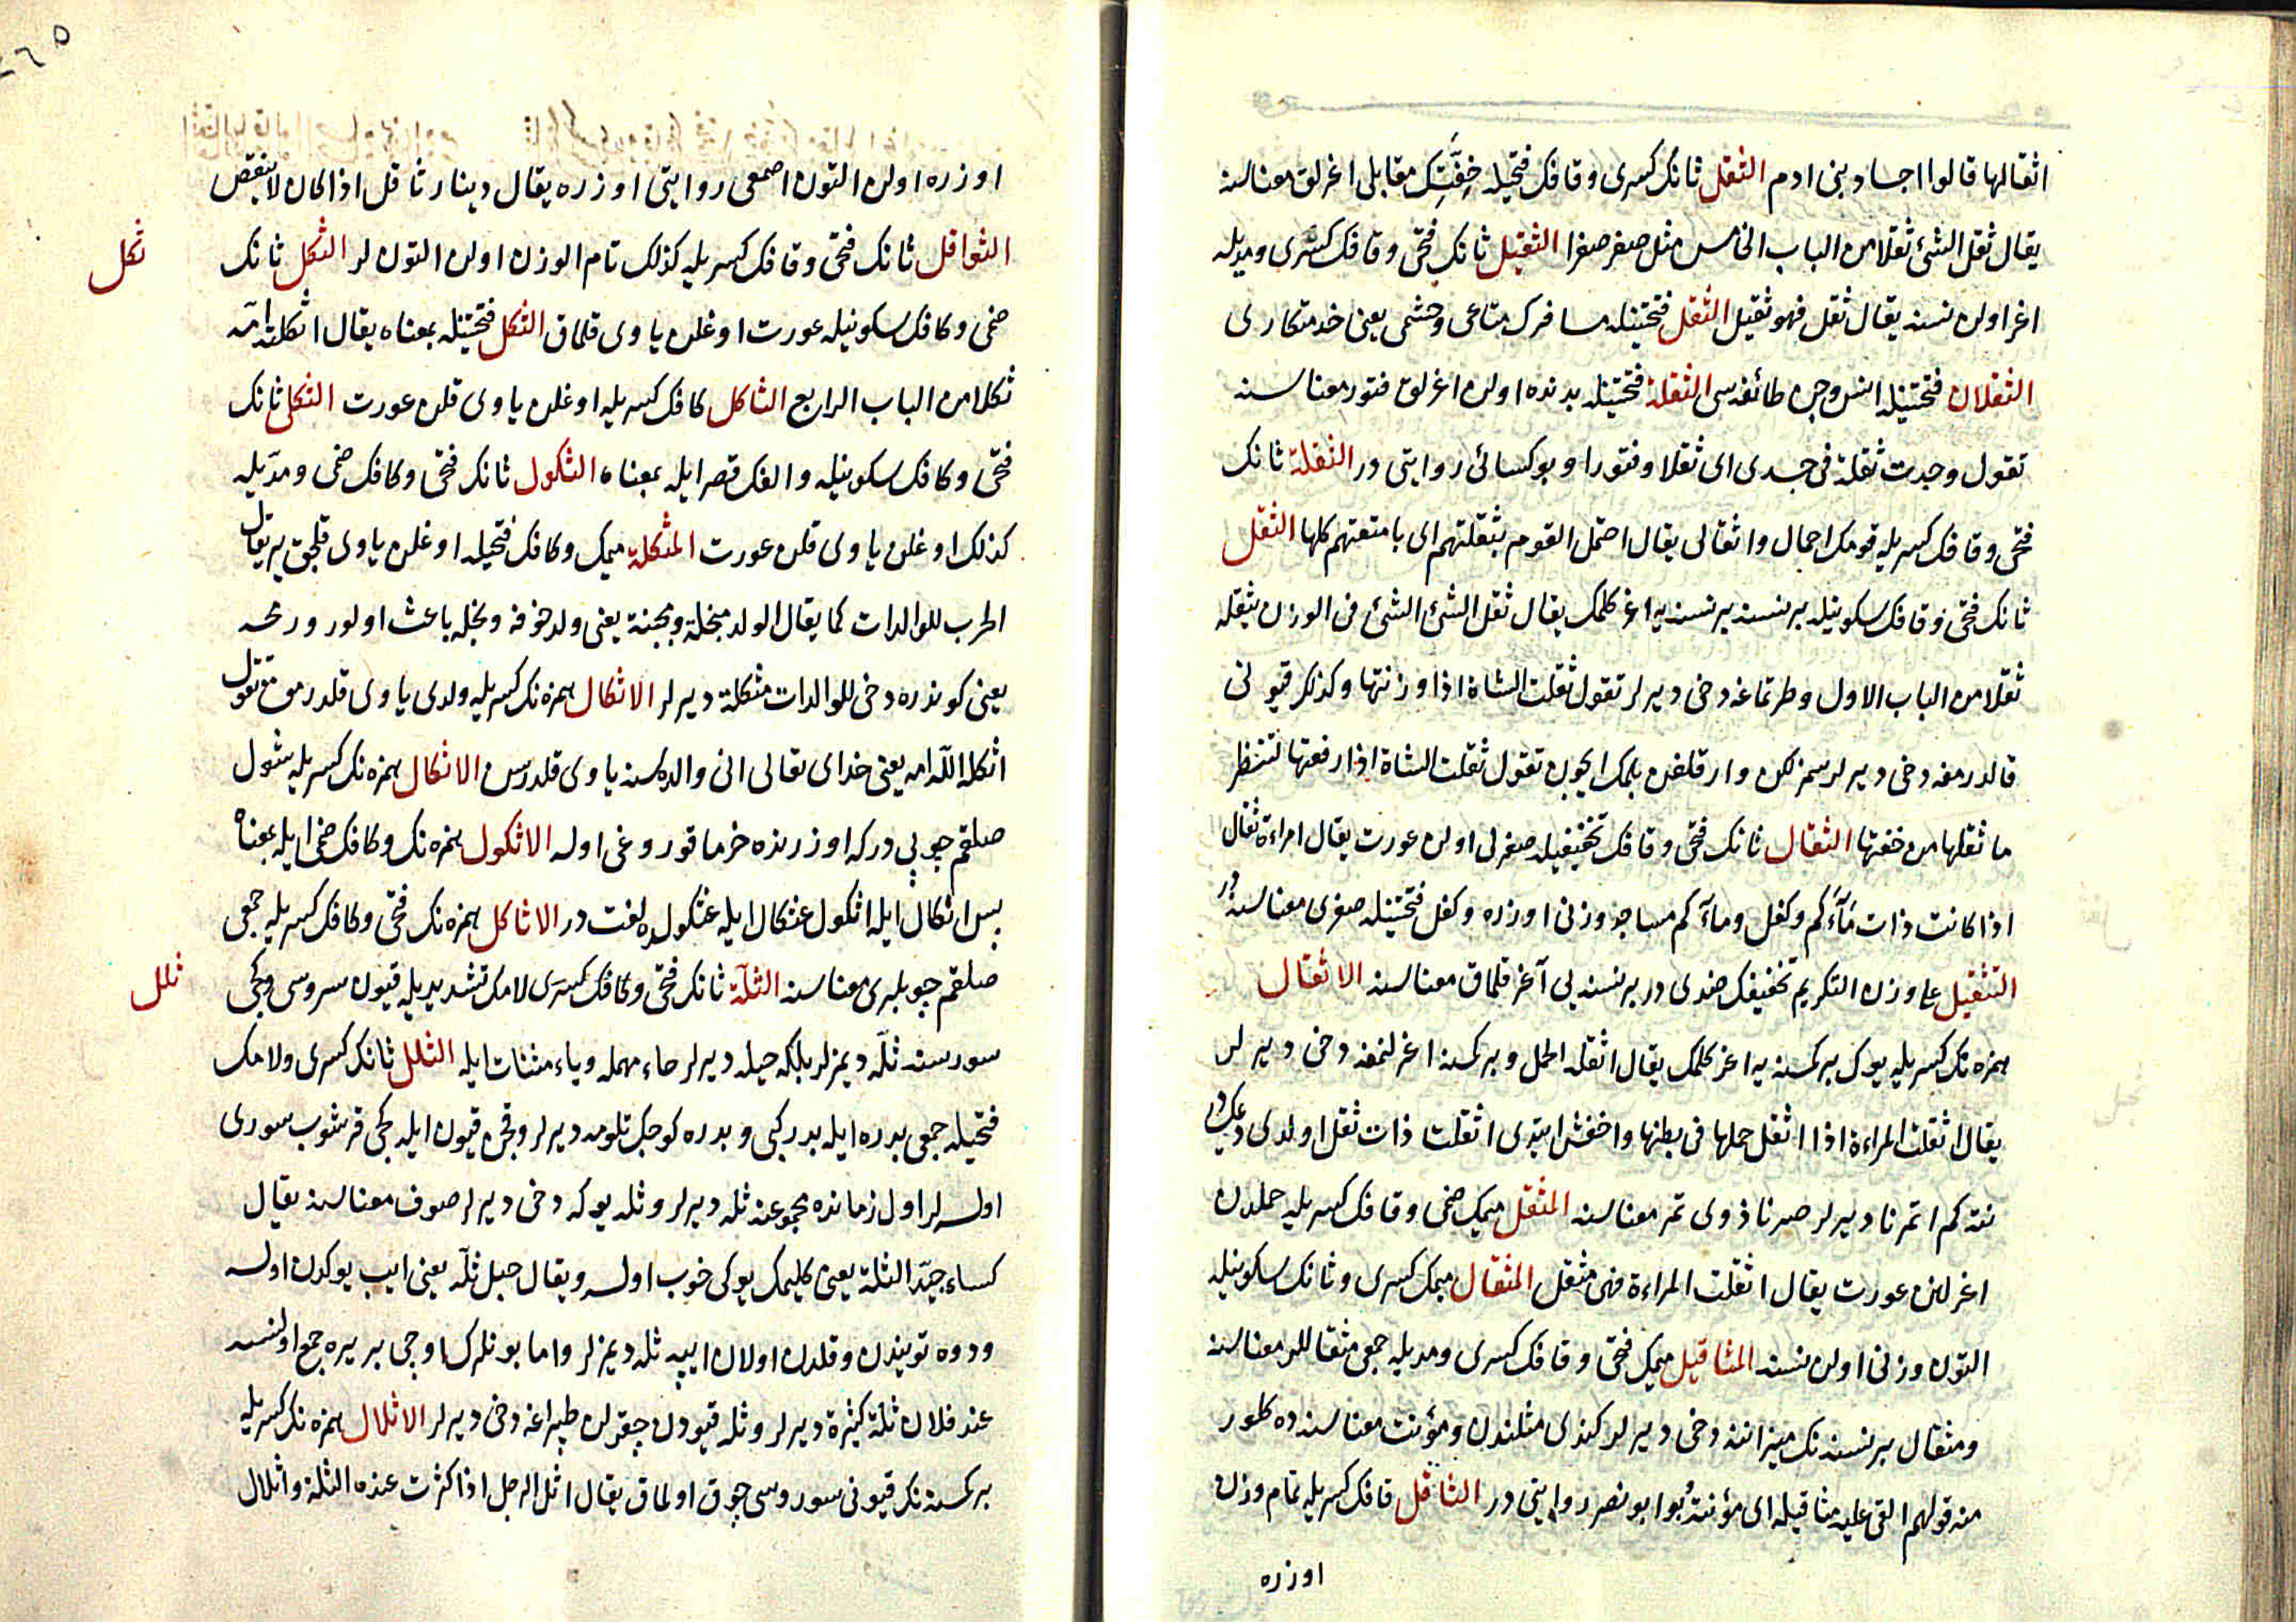 اثقالها قالوا اجساد بنی ادم الثقل ثانک کسری وقافک فتحیله خِفَّتِک مقابلی اغرلق معناسنه
یقال ثقل الشئ ثقلا من الباب الخامس مثل صغر صغرا الثقیل ثانک فتحی وقافک کسری ومدیله
اغر اولن نسنه یقال ثقل فهو ثقیل الثقل فتحتینله مسافرک متاعی وحشمی یعنی خدمتکاری
الثقلان فتحتینله انس وجن طائفه سی الثقلة فتحتینله بدنده اولن اغرلق فتور معناسنه
تقول وجدت ثقلة فی جسدی ای ثقلا وفتورا وبو کسائی روایتی در الثقلة ثانک
فتحی وقافک کسریله قومک احمال واثقالی یقال احتمل القوم بثقلتهم ای بامتعتهم کلها الثقل
ثانک فتحی وقافک سکونیله بر نسنه بر نسنه یه اغر کلمک یقال ثقل الشئ الشئ فی الوزن یثقله
ثقلا من الباب الاول وطرتماغه دخی دیرلر تقول ثقلت الشاة اذا وزنتها وکذلک قیونی
قالدرمغه دخی دیرلر سمزلکن وارقلغن بلمک ایچون تقول ثقلت الشاة اذا رفعتها لتنظر
ما ثقلها من خفتها الثقال ثانک فتحی وقافک تخفیفیله صغرلی اولن عورت یقال امراءة ثقال
اذا کانت ذات مَآءکم وکفل ومآءکم مساجد وزنی اوزره وکفل فتحتینله صغری معناسنه در
التثقیل علی وزن التکریم تخفیفک ضدی در بر نسنه یی آغر قلمق معناسنه الاثقال
همزه نک کسریله یوک بر کمسنه یه اغر کلمک یقال اثقله الحمل وبر کمسنه اغرلنمغه دخی دیرلر
یقال اثقلت المراءة اذا اثقل حملها فی بطنها واخفش ایتدی اثقلت ذات ثقل اولدی دیمکدر
نته کم اتمرنا دیرلر صرنا ذوی تمر معناسنه المثقل میمک ضمی وقافک کسریله حملدن
اغرلنن عورت یقال اثقلت المراءة فهی مثقل المثقال میمک کسری وثانک سکونیله
التون وزنی اولن نسنه المثاقیل میمک فتحی وقافک کسری ومدیله جمعی مثقاللر معناسنه
ومثقال بر نسنه نک میزاننه دخی دیرلر کندی مثلندن ومؤنت معناسنده کلور
منه قولهم القی علیه مثاقیله ای مؤنته بو ابو نصر روایتی در الثاقل قافک کسریله تمام وزن
اوزره
اوزره اولن التون اصمعی روایتی اوزره یقال دینار ثاقل اذا کان لا ینقص
الثواقل ثانک فتحی وقافک کسریله کذلک تام الوزن اولن التونلر الثکل ثانک
ثکل
ضمی وکافک سکونیله عورت اوغلن یاوی قلمق الثکل فتحتینله بمعناه یقال اثکلته امّه
ثکلا من الباب الرابع الثاکل کافک کسریله اوغلن یاوی قلن عورت الثکلی ثانک
فتحی وکافک سکونیله والفک قصرایله بمعناه الثکول ثانک فتحی وکافک ضمی ومدّیله
کذلک اوغلن یاوی قلن عورت المثکلة میمک وکافک فتحیله اوغلن یاوی قلجق یر یقال
الحرب للوالدات کما یقال الولد مبخلة ومجبنة یعنی ولد خوفه وبخله باعث اولور
یعنی کونذره دخی للوالدات مثکلة دیرلر الاثکال همزه نک کسریله ولدی یاوی قلدرمق تقول
اثکله الله امه یعنی خدای تعالی انی والده سنه یاوی قلدرسن الاثکال همزه نک کسریله شول
صلقم چوپی درکه اوزرنده خرما قوروغی اوله الاثکول همزه نک وکافک ضمی ایله بمعناه
پس اثکال ایله اثکول عثکال ایله عثکولده لغت در الاثاکل همزه نک فتحی وکافک کسریله جمعی
صلقم چوپلری معناسنه الثلّة ثانک فتحی وکافک کسری لامک تشدیدیله قیون سروسی وکچی
ثلل
سورسنه ثلّه دیمزلر بلکه حیله دیرلر حاء مهمله ویاء مثنات ایله الثلل ثانک کسری ولامک
فتحیله جمعی بدره ایله بدر کبی وبدره کوچک تلومه دیرلر وقچن قیون ایله کچی قرشوب سوری
اولسه لر اول زمانده مجموعنه ثله دیرلر وثله یوکه دخی دیرلر صوف معناسنه یقال
کساء جیّد الثلة یعنی کلیمک یوکی خوب اوله ویقال حبل ثلّه یعنی ایپ یوکدن اوله
ودوه تویندن وقلدن اولان ایپه ثله دیمزلر واما بونلرک اوچی بر یره جمع اولنسه
عند فلان ثلة کثیرة دیرلر وثله قیودن چقرلن طپراغه دخی دیرلر الاثلال همزه نک کسریله
بر کمسنه نک قیونی سوروسی چوق اولماق یقال اثل الرجل اذا کثرت عنده الثلة واثلال